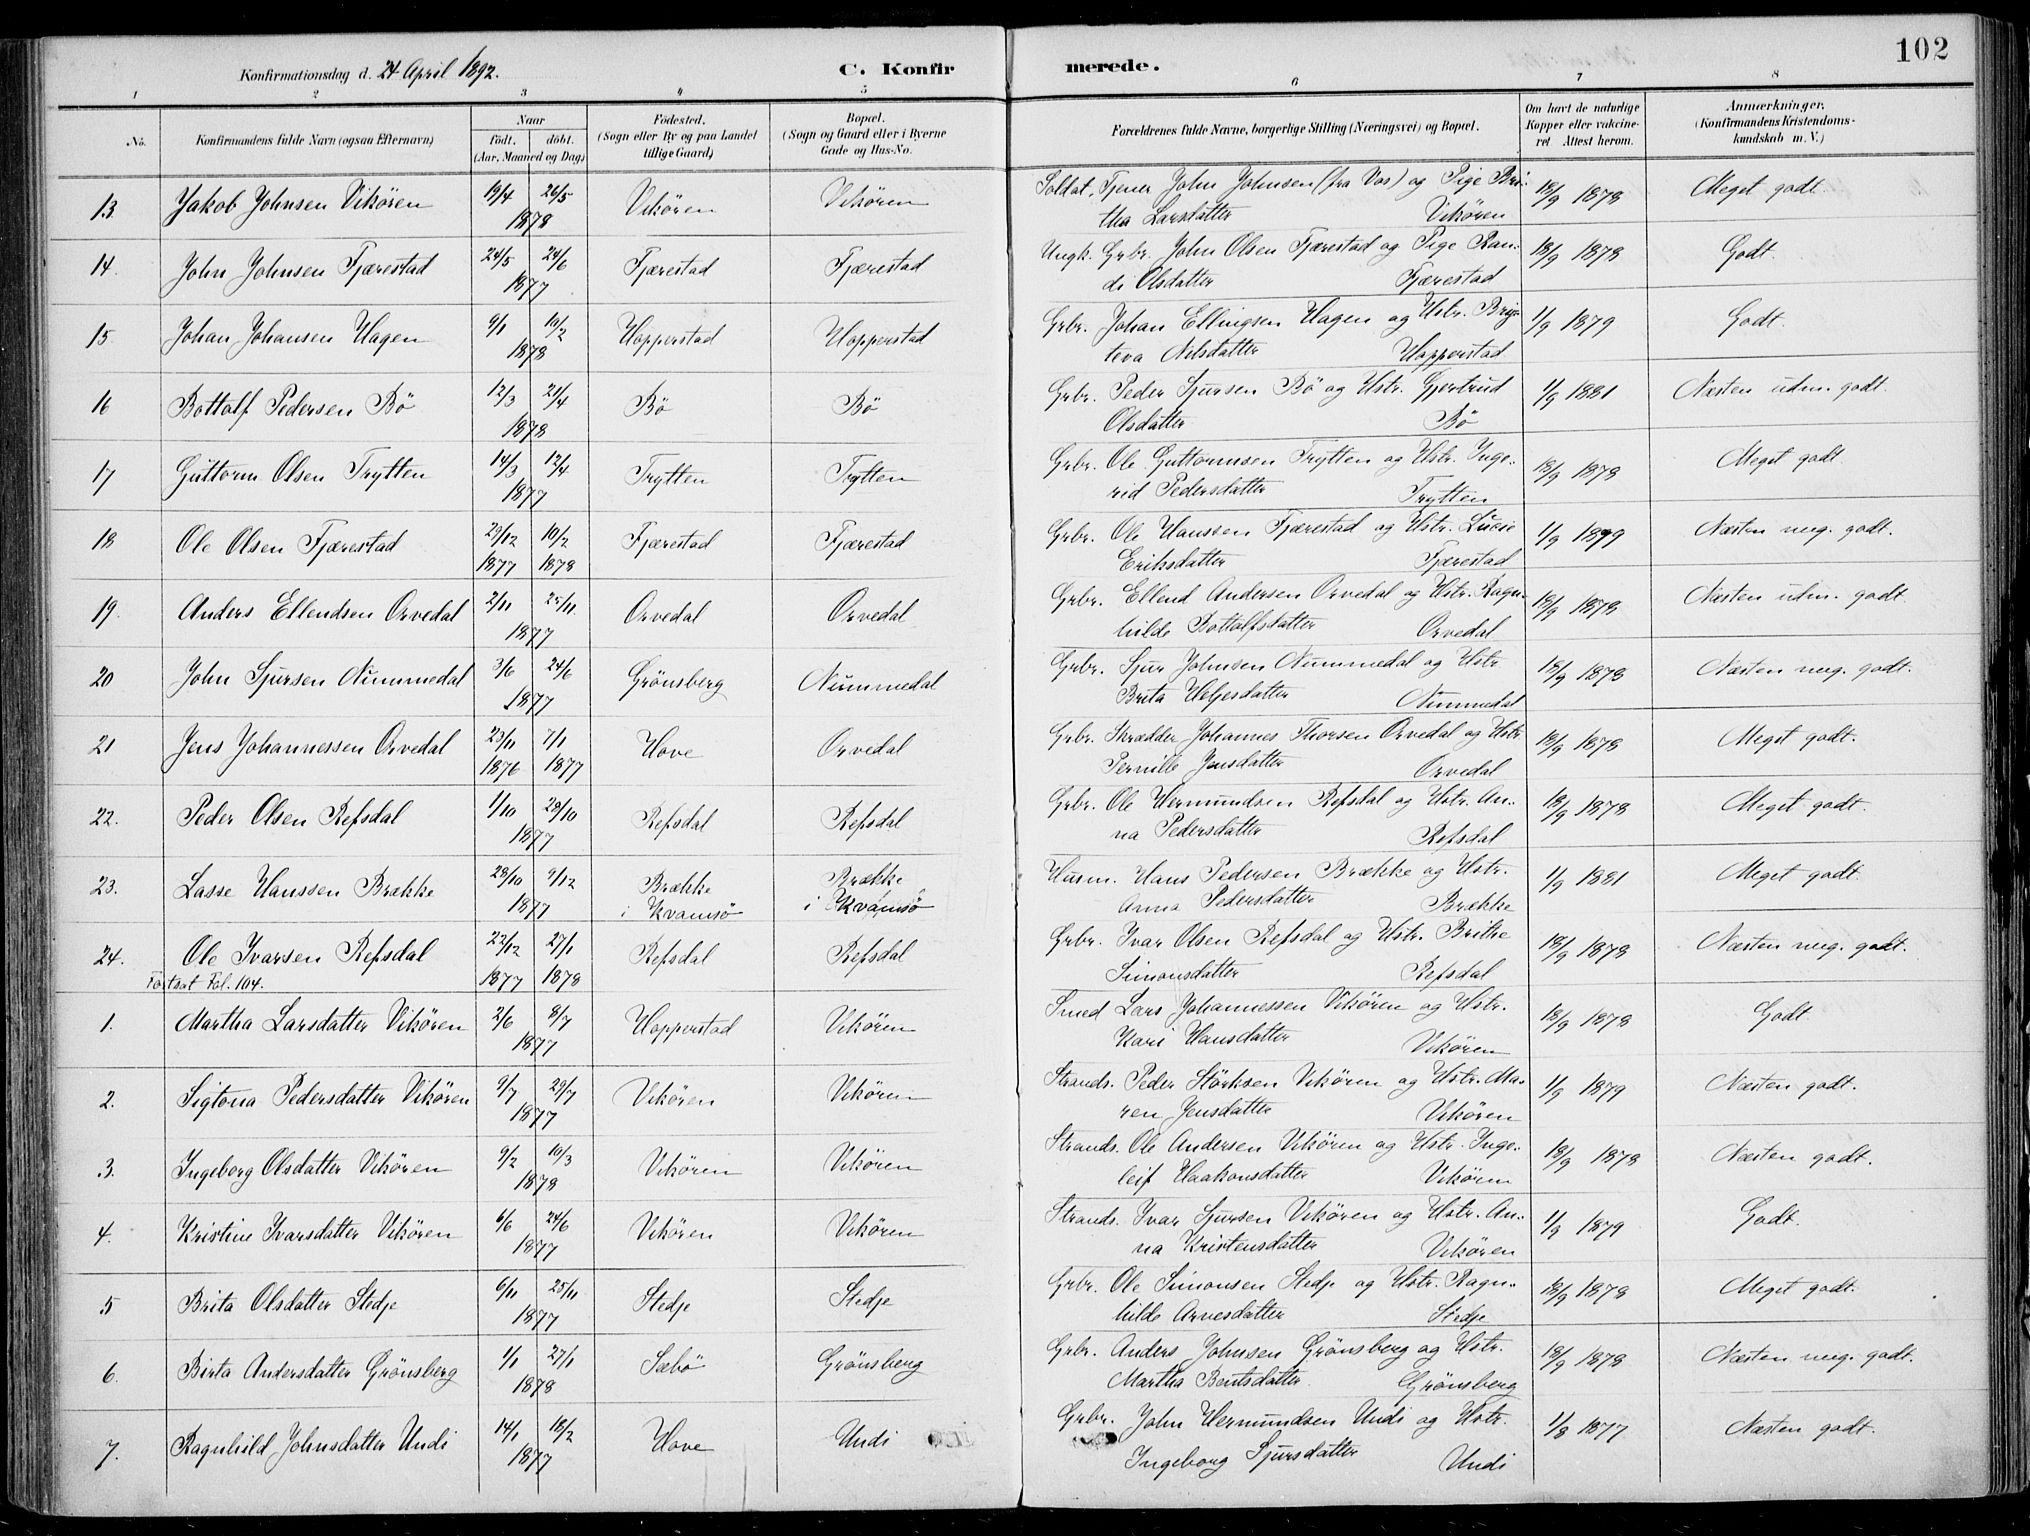 102
Konfirmationsdag d. 24 April 1892.
C. Konfir
merede.
1 2 3 4 5 6 7 8
No.
Konfirmandens fulde Navn (ogsaa Efternavn)
Naar
födt. döbt.
(Aar, Maaned og Dag)
Födested.
(Sogn eller By og paa Landet
tillige Gaard)
Bopæl.
(Sogn og Gaard eller i Byerne
Gade og Hus-No.
Forældrenes fulde Navne, borgerlige Stilling (Næringsvei) og Bopæl.
Om havt de naturlige
Kopper eller vakcine-
ret. Attest herom.
Anmærkninger.
(Konfirmandens Kristendoms-
kundskab m. V.)
13 Jakob Johnsen Vikören 19/4 26/5 Vikören Vikören Soldat, Tjener John Johnsen (fra Vos) og Pige Bri- 18/9 1878 Meget godt.
1878 tha Larsdatter Vikören
14. John Johnsen Fjærestad 24/5 24/6 Fjærestad Fjærestad Ungk. Grbr. John Olsen Fjærestad og Pige Ran- 18/9 1878 Godt.
1877 di Olsdatter Fjærestad
15. Johan Johansen Hagen 9/1 10/2 Hopperstad Hopperstad Grbr. Johan Ellingsen Hagen og Hstr. Brig- 1/9 1879 Godt.
1878 teva Nilsdatter Hopperstad
16 Bottolf Pedersen Bö 12/3 21/4 Bö Bö Grbr. Peder Sjursen Bö og Hstr. Gjertrud 1/9 1881 Næsten udm. godt.
1878 Olsdatter Bö
17 Guttorm Olsen Trytten 14/3 12/4 Trytten Trytten Grbr. Ole Guttormsen Trytten og Hstr. Inge- 18/9 1878 Meget godt.
1877 rid Pedersdatter Trytten
18 Ole Olsen Fjærestad 29/12 10/2 Fjærestad Fjærestad Grbr. Ole Hanssen Fjærestad og Hstr. Lucie 1/9 1879 Næsten meg. godt.
1877 1878 Eriksdatter Fjærestad
19. Anders Ellendsen Orvedal 2/11 25/11 Orvedal Orvedal Grbr. Ellend Andersen Orvedal og Hstr. Ragn- 18/9 1878 Næsten udm. godt.
1877 hilde Bottolfsdatter Orvedal
20 John Sjursen Nummedal 3/6 24/6 Grönsberg Nummedal Grbr. Sjur Johnsen Nummedal og Hstr 18/9 1878 Næsten meg. godt.
1877 Brita Helgesdatter Nummedal
21 Jens Johannessen Orvedal 23/11 7/1 Hove Orvedal Grbr. Skrædder Johannes Thorsen Orvedal og Hstr 18/9 1878 Meget godt.
1876 1877 Pernille Jensdatter Orvedal
22. Peder Olsen Refsdal 1/10 28/10 Refsdal Refsdal Grbr. Ole Hermundsen Refsdal og Hstr. An- 18/9 1878 Meget godt.
1877 na Pedersdatter Refsdal
23. Lasse Hanssen Brække 28/10 9/12 Brække Brække Husm. Hans Pedersen Brække og Hstr. 1/9 1881 Meget godt.
1877 i Kvamsö i Kvamsö Anna Pedersdatter Brække
24. Ole Ivarsen Refsdal 22/12 27/1 Refsdal Refsdal Grbr. Ivar Olsen Refsdal og Hstr. Brithe 18/9 1878 Næsten meg. godt.
Fortsat Fol. 104. 1877 1878 Simonsdatter Refsdal
1. Martha Larsdatter Vikören 2/6 8/7 Hopperstad Vikören Smed Lars Johannessen Vikören og Hstr. 18/9 1878 Godt
1877 Kari Hansdatter Vikören
2. Sigtona Pedersdatter Vikören 9/7 29/7 Vikören Vikören Strands. Peder Störksen Vikören og Hstr. Ma- 1/9 1879 Næsten godt.
1877 ren Jensdatter Vikören
3. Ingeborg Olsdatter Vikören 9/2 10/3 Vikören Vikören Strands. Ole Andersen Vikören og Hstr. Inge- 18/9 1878 Næsten godt.
1878 leif Haakonsdatter Vikören
4. Kristine Ivarsdatter Vikören 6/6 24/6 Vikören Vikören Strands. Ivar Sjursen Vikören og Hstr. An- 1/9 1879 Godt.
1877 na Kristensdatter Vikören
5 Brita Olsdatter Stedje 6/11 25/11 Stedje Stedje Grbr. Ole Simonsen Stedje og Hstr. Ragn- 18/9 1878 Meget godt.
1877 hilde Arnesdatter Stedje
6. Birta Andersdatter Grönsberg 1/1 27/1 Sæbö Grönsberg Grbr. Anders Johnsen Grönsberg og Hstr. 18/9 1878 Næsten meg. godt.
1878 Martha Bentsdatter Grönsberg
7. Ragnhild Johnsdatter Undi 14/1 18/2 Hove Undi Grbr. John Hermundsen Undi og Hstr. 1/8 1877 Næsten godt.
1877 Ingeborg Sjursdatter Undi